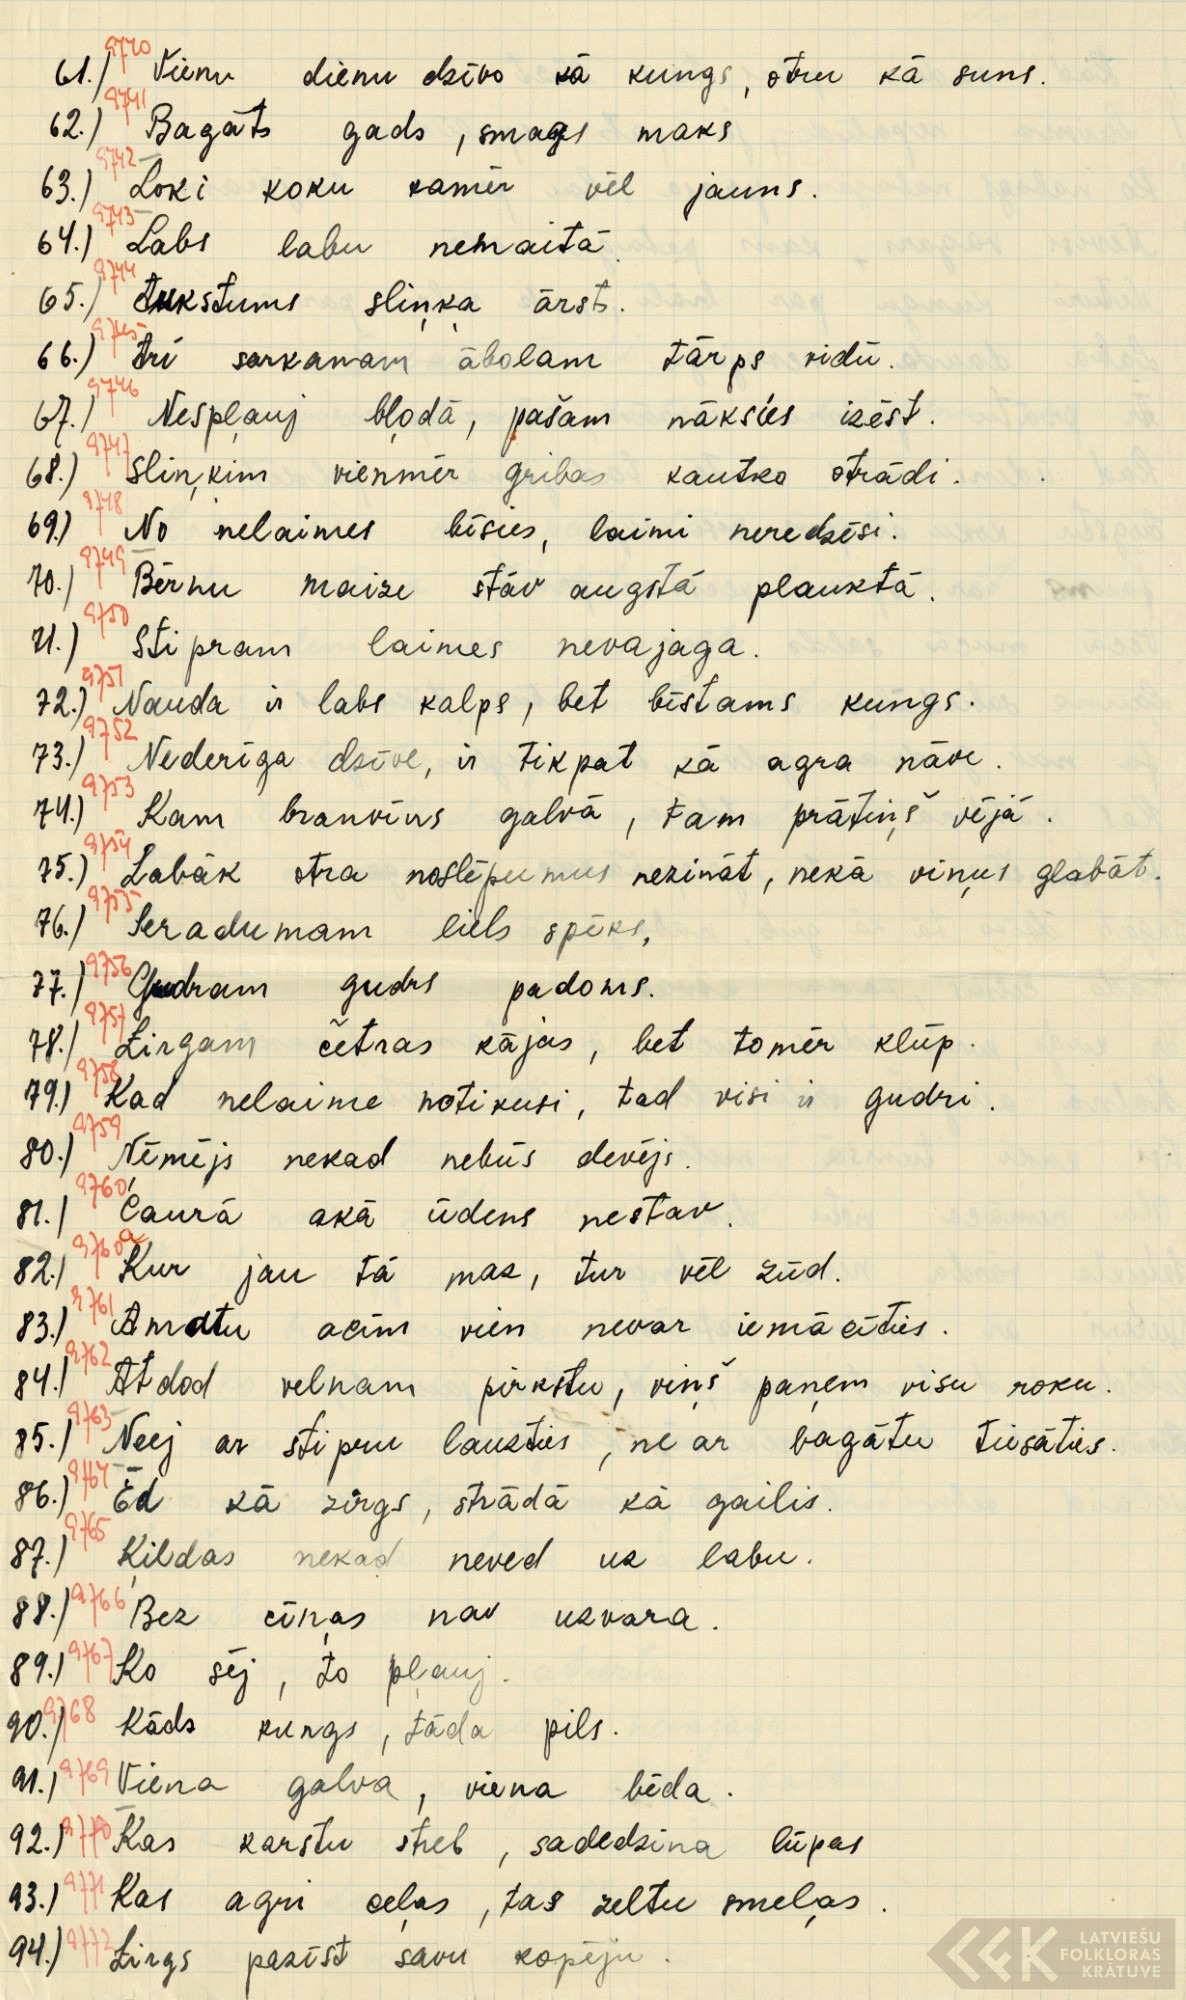 61.) 9740 Vienu dienu dzīvo kā kungs, otru kā suns.
62.) 9741 Bagāts gads, smags maks
63.) 9742 Loki koku kamēr vēl jauns.
64.) 9743 Labs labu nemaitā.
65.) 9744 tukstums sliņķa ārsts.
66.) 9745 Arī sarkanam ābolam tārps vidū.
67.) 9746 Nespļauj bļodā, pašam nāksies izēst.
68.) 9747 Sliņķim vienmēr gribas kautko otrādi.
69.) 9748 No nelaimes bīsies, laimi neredzēsi.
70.) 9749 Bērnu maize stāv augstā plauktā.
71.) 9750 Stipram laimes nevajaga.
72.) 9751 Nauda ir labs kalps, bet bīstams kungs.
73.) 9752 Nederīga dzīve, ir tikpat kā agra nāve.
74.) 9753 Kam branvīns galvā, tam prātiņš vējā.
75.) 9754 Labāk otra noslēpumus nezināt, nekā viņus glabāt.
76.) 9755 Ieradumam liels spēks,
77.) 9756 Gudram gudrs padoms.
78.) 9757 Zirgam četras kājas, bet tomēr klūp.
79.) 9758 Kad nelaime notikusi, tad visi ir gudri.
80.) 9759 Nēmējs nekad nebūs devējs.
81.) 9760 Caurā akā ūdens nestav.
82.) 9760a Kur jau tā maz, tur vēl zūd.
83.) 9761 Amatu acīm vien nevar iemācīties.
84.) 9762 Atdod velnam pirkstu, viņš paņem visu roku.
85.) 9763 Neej ar stipru lauzties, ne ar bagātu tiesāties.
86.) 9764 Ēd kā zirgs, strādā kā gailis.
87.) 9765 Ķildas nekad neved uz labu.
88.) 9766 Bez cīņas nav uzvara.
89.) 9767 Ko sēj, to pļauj.
90.) 9768 Kāds kungs, tāda pils.
91.) 9769 Viena galva, viena bēda.
92.) 9770 Kas karstu streb, sadedzina lūpas
93.) 9771 Kas agri ceļas, tas zeltu smeļas.
94.) 9772 Zirgs pazīst savu kopēju.
LATVIEŠU
FOLKLORAS
KRĀTUVE